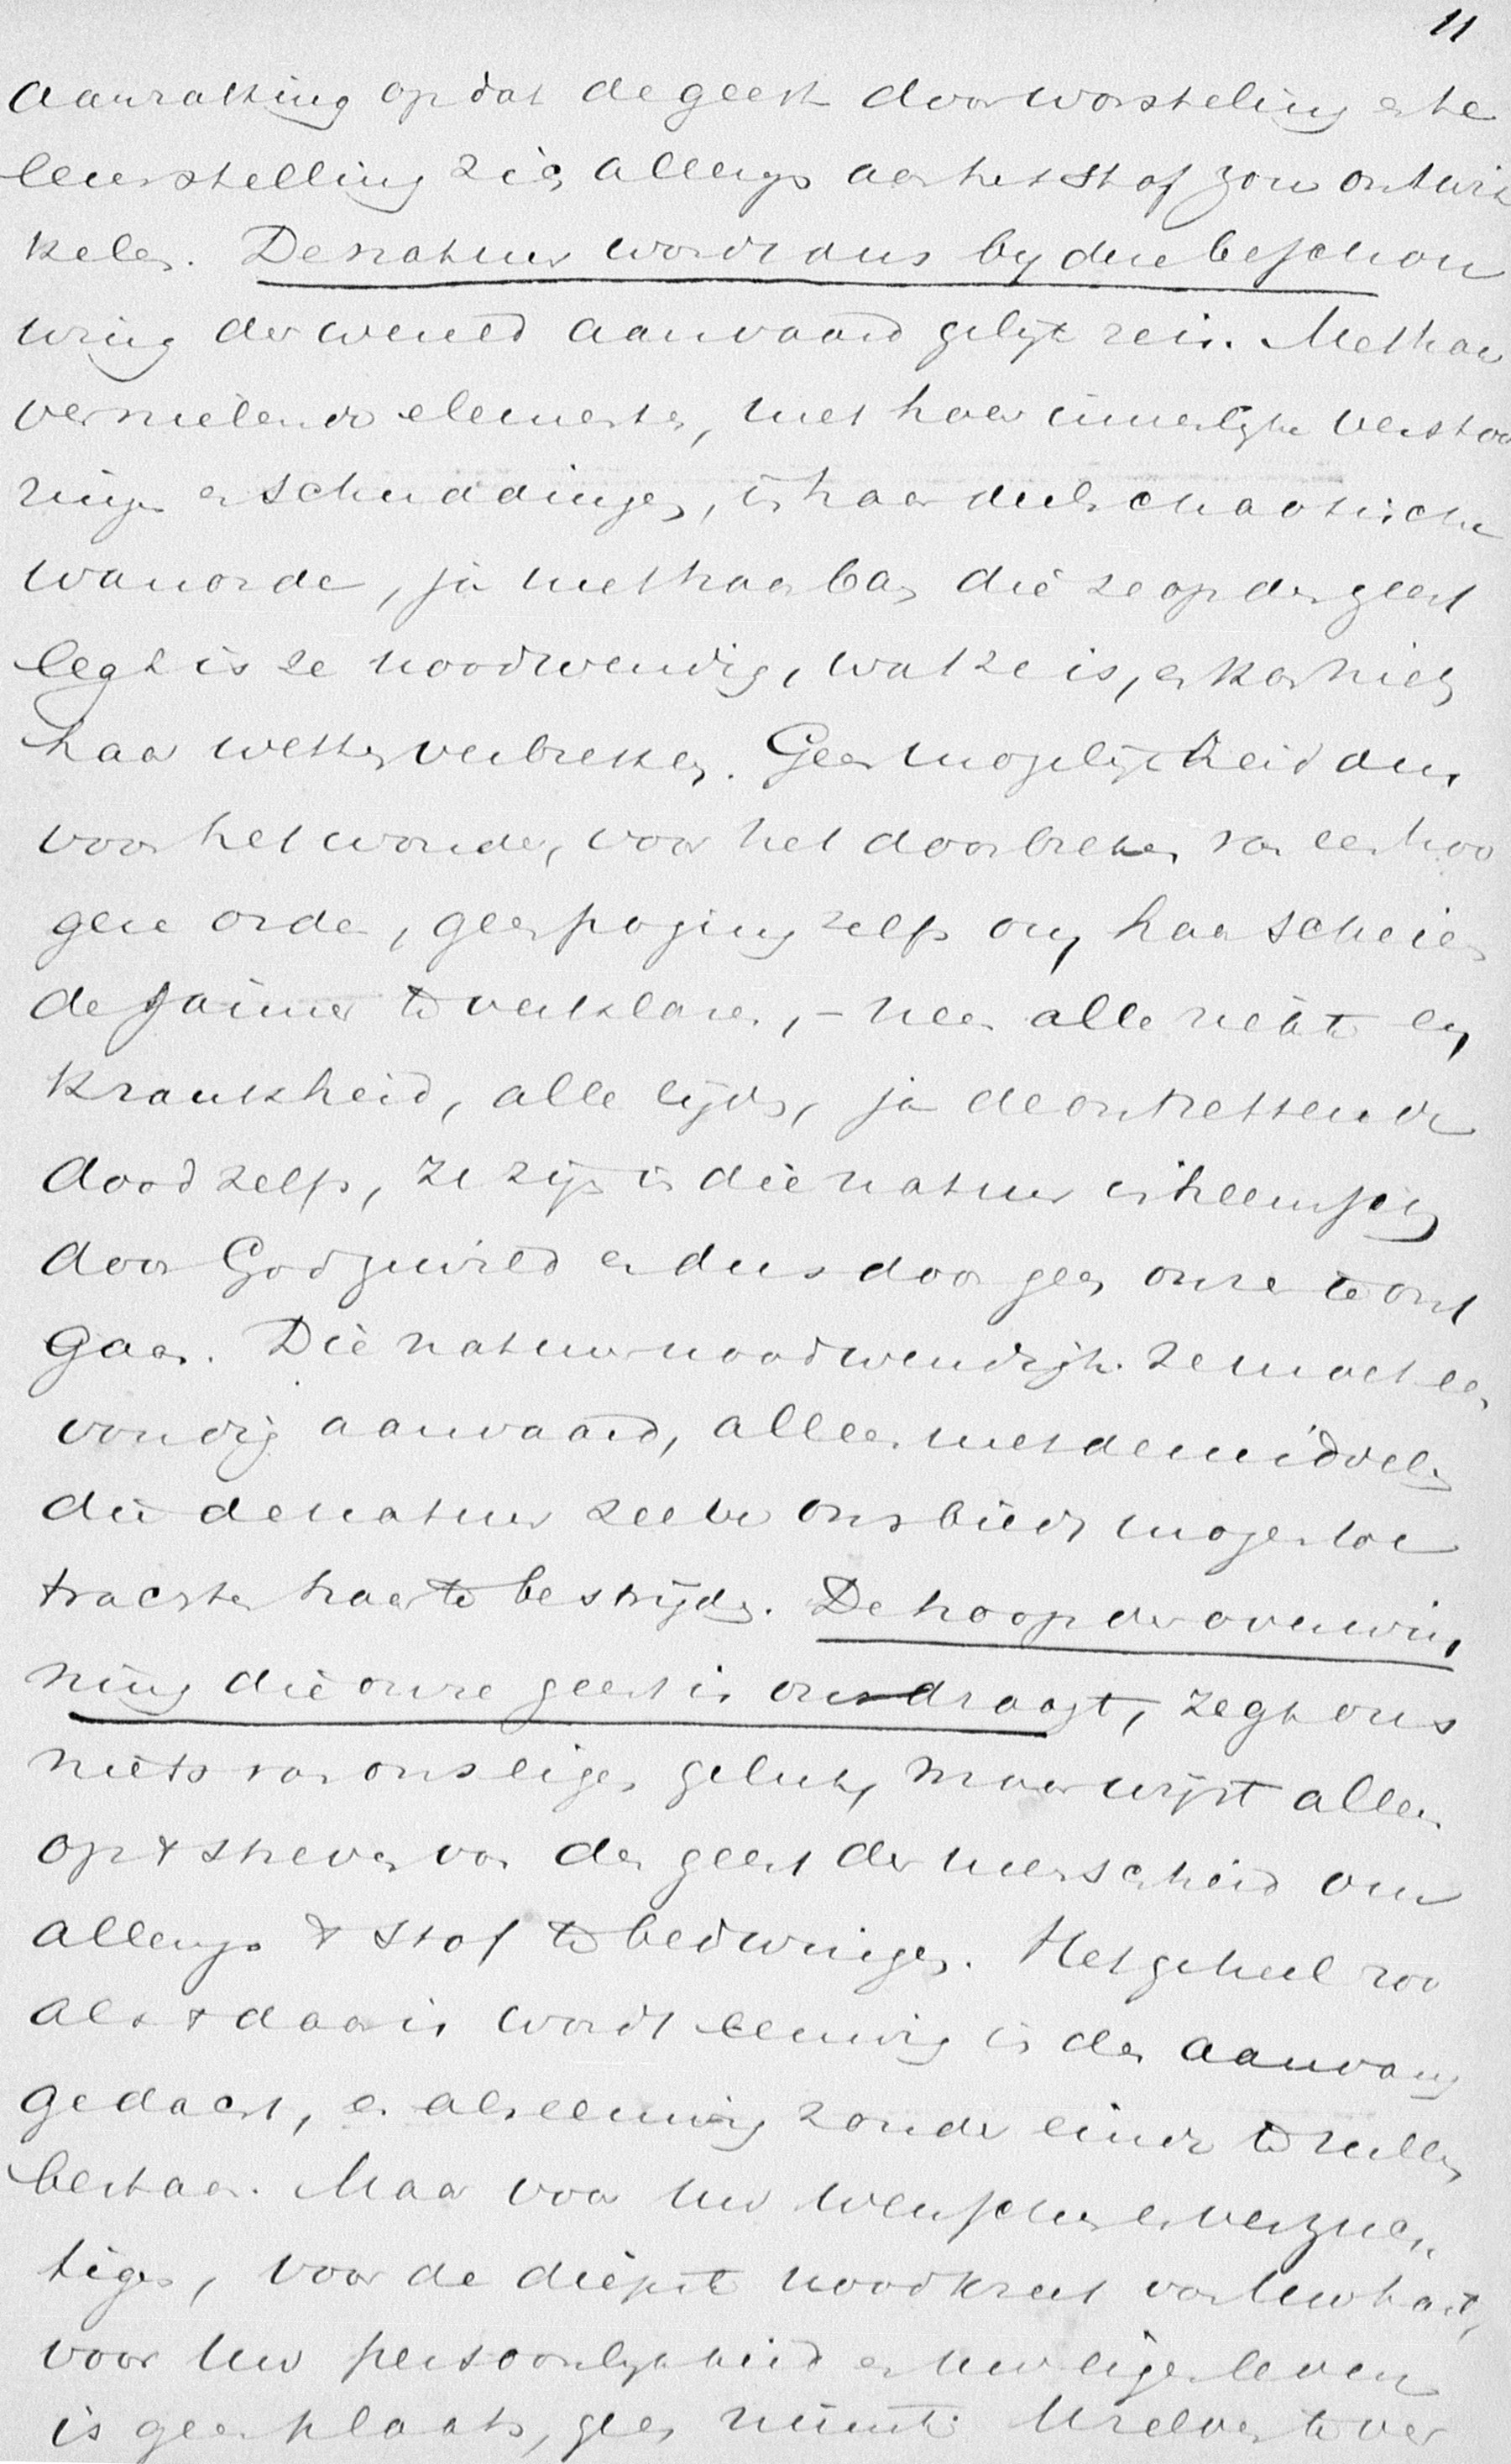 11
aanraking opdat de geest door worsteling en te
leurstelling zich allengs aan het stof zou ontwik
kelen. De natuur wordt dus by die beschou
wing der wereld aanvaard gelijk ze is. Met haar
vernielende elementen, met haar innerlijke verstoo
ringen en schuddingen, in haar deels chaotische
wanorde, ja met haar ban die ze op den geest
legt is ze noodwendig, wat ze is, en kan niets
haar wetten verbreken. Geen mogelijkheid dus
voor het wonder, voor het doorbreken van een hoo
gere orde, geen poging zelfs om haar schei
de te verklaren, – neen alle ziekte en
krankheid, alle lijden, ja de ontzettende
dood zelfs, ze zijn in die natuur inheemsch
door God gewild en dus door geen onzer te ont
gaan. Die natuurnoodwendigh. ze moet een
voudig aanvaard, alleen met de middelen
die de natuur zelve ons biedt mogen we
trachten haar te bestrijden. De hoop der overwin
ning die onze geest in ons draagt, zegt ons
niets van ons eigen geluk, maar wijst alleen
op 't streven van den geest der menschheid om
allengs 't stof te bedwingen. Het geheel zoo
als 't daar is wordt eeuwig in den aanvang
gedacht, en als eeuwig zonder einde te zullen
bestaan. Maar voor uw wenschen en verzuch
tigen, voor de diepste noodkreet van Uw hart,
voor Uw persoonlijkheid en Uw eigen leven
is geen plaats, geen ruimte. Uzelven te ver